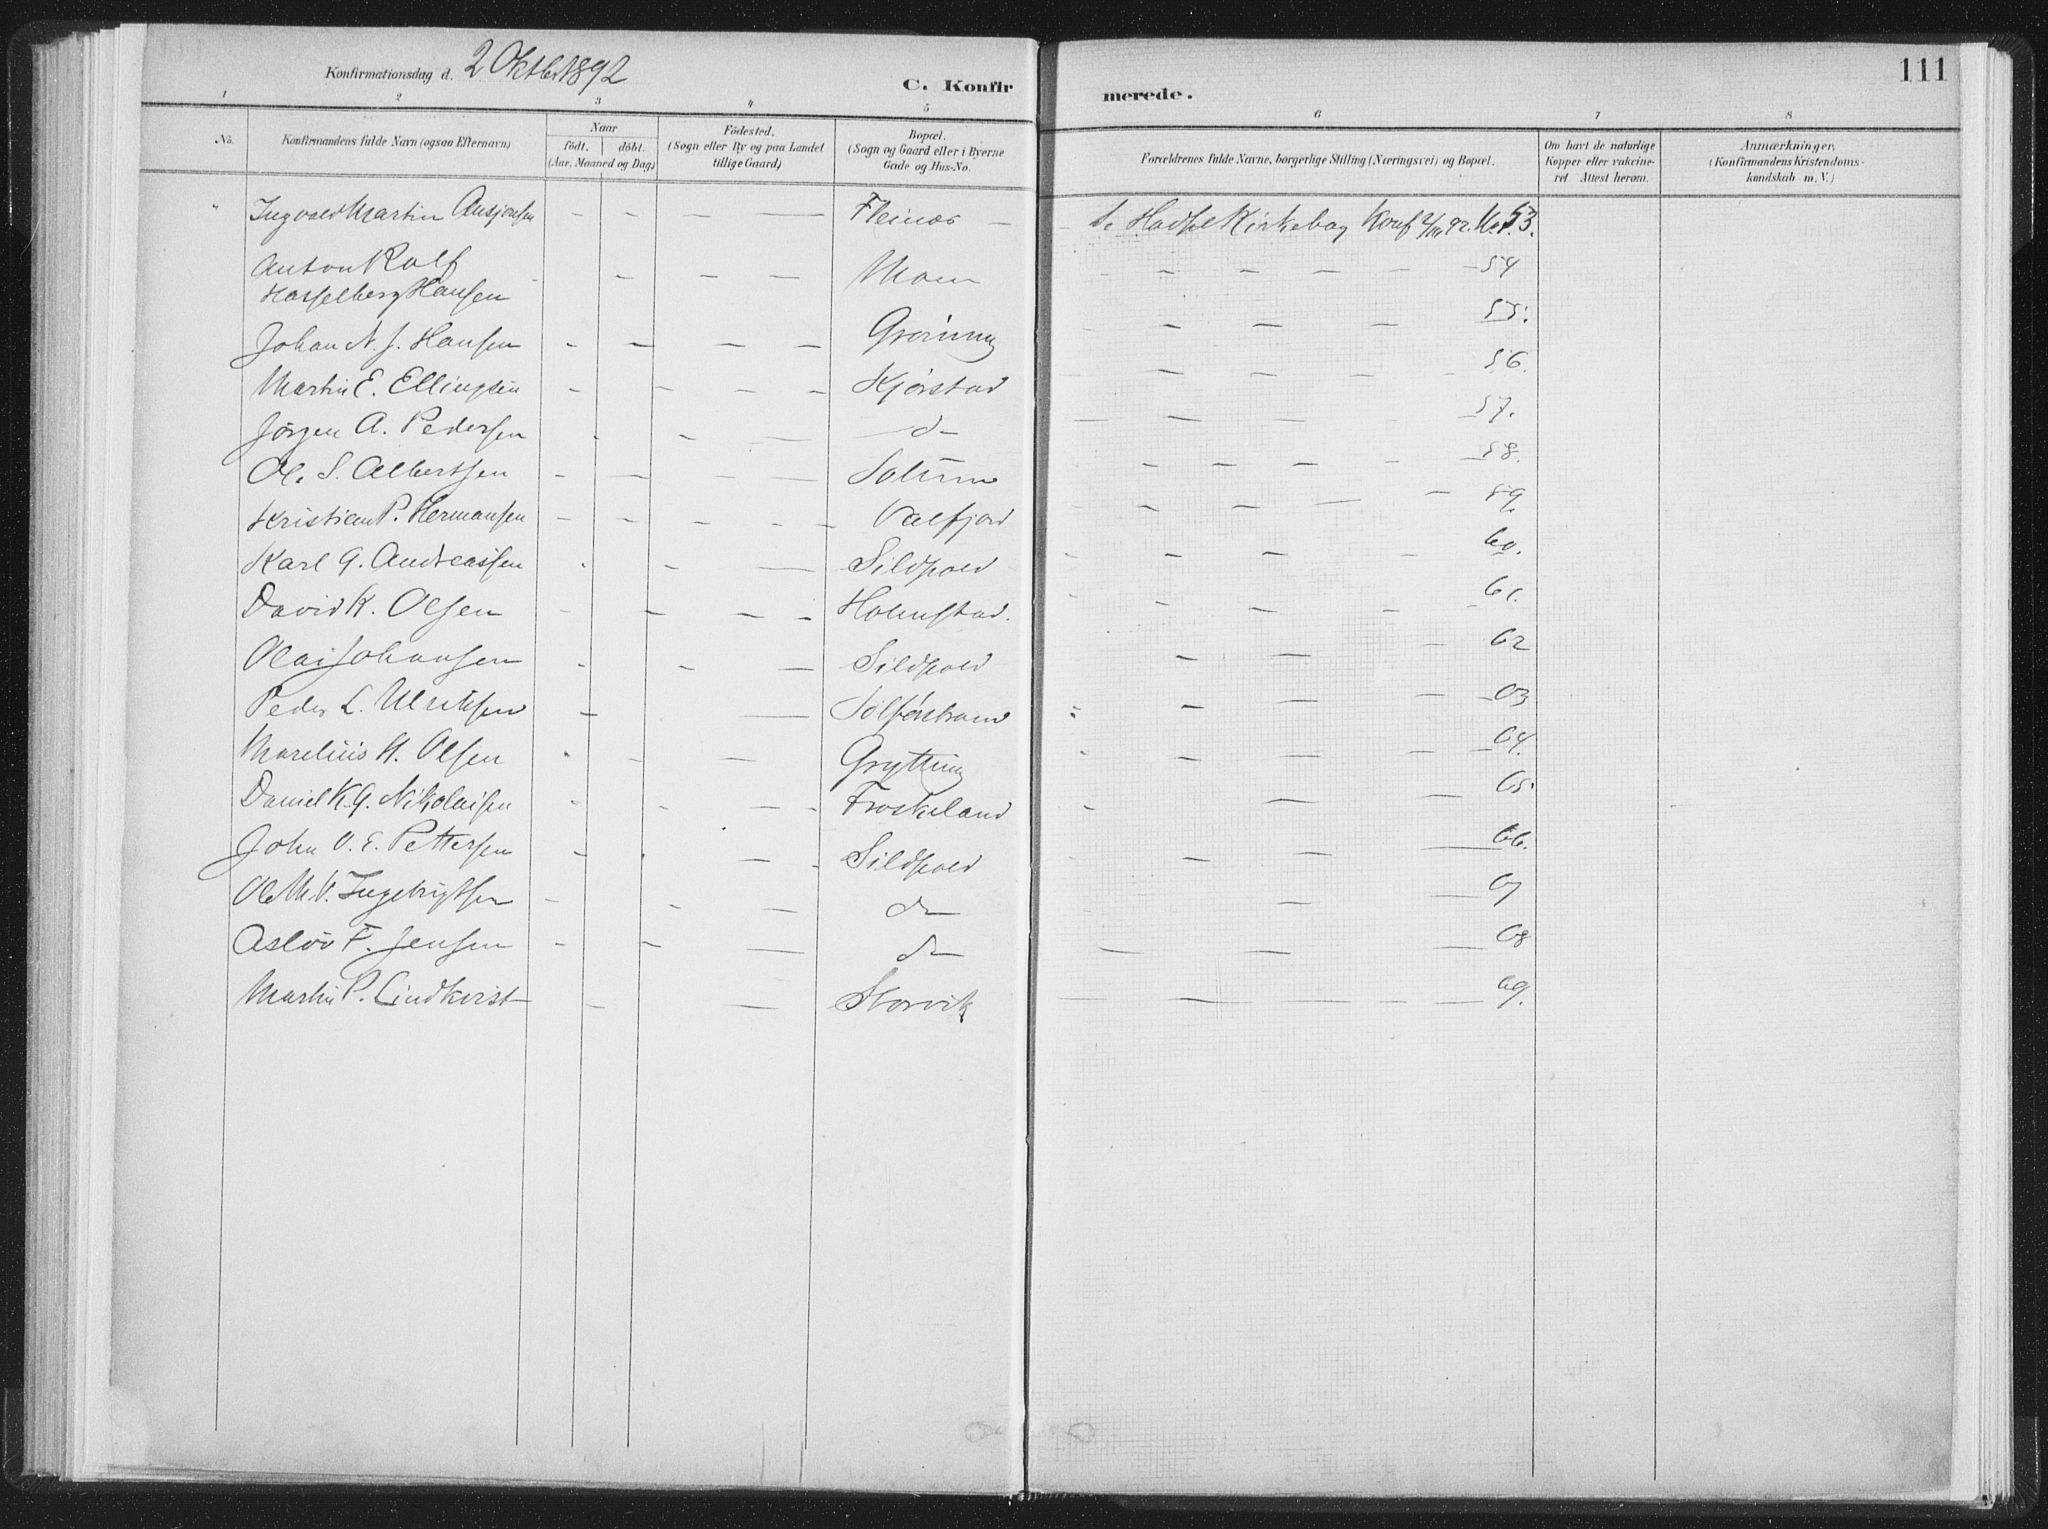 Konfirmationsdag d. 2 Oktbr 1892
C. Konfirmerede.
111
1 2 3 4 5 6 7 8
No.
Konfirmandens fulde Navn (ogsaa Efternavn)
Naar
födt. döbt.
(Aar, Maaned og Dag)
Födested.
(Sogn eller By og paa Landet
tillige Gaard)
Bopæl.
(Sogn og Gaard eller i Byerne
Gade og Hus-No.
Forældrenes fulde Navne, borgerlige Stilling (Næringsvei) og Bopæl.
Om havt de naturlige
Kopper eller vakcine-
ret Attest herom.
Anmærkninger,
(Konfirmandens Kristendoms-
kundskab m. V.)
Ingvald Martin Ansjonsen — — — — Fleinæs — S. Hadsel Kirkebog Konf 2/10 92. No. 53.
Anton Rolf
Hasselberg Hansen — — — Moen — — — — — — 54
Johan N. J. Hansen — — — — Grøning — — — — 55.
Martin E. Ellingsen — — — — Kjørstad — — — — 56.
Jörgen A. Pedersen — — — d — — — — — 57.
Ol. S. Albertsen — — — — Solum — — — — — 58.
Kristian P. Hermansen — — — — — Valfjord — — — — — 59.
Karl G. Andreassen — — — Sildpold — — — — 60.
David K. Olsen — — — — Holmstad. — — — — — 61.
Olai Johansen — — — Sildpold — — — 62
Peder L. Ulriksen — — — — — — 63
Marelius H. Olsen — — — Grytting — — — — — 64.
Daniel K. G. Nikolaisen — — — — Froskeland — — — 65.
John O. E. Pettersen — — — — Sildpold — — — 66.
Ole M. V. Ingebrigtsen — — — do — — 67
Aslöv F. Jensen — — — do — — — 68
Martin P. Lindkvist — — Storvik — — — — — 69.